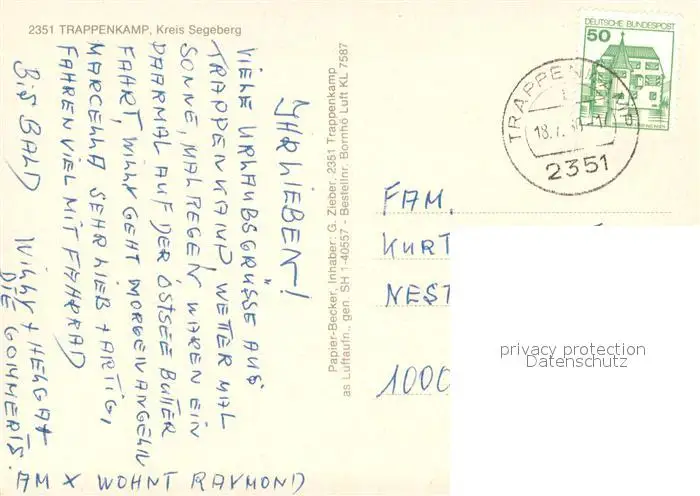 2351 TRAPPENKAMP, Kreis Segeberg
IHR LIEBEN!
VIELE URLAUBSGRÜSSE AUS
TRAPPENKAMP, WETTER MAL
SONNE, MAL REGEN, WAREN EIN
PAARMAL AUF DER OSTSEE BUTTER
FAHRT, WILLY GEHT MORGEN ANGELN
MARCELLA SEHR LIEB + ARTIG,
FAHREN VIEL MIT FAHRRAD
BIS BALD
WILLY + HELGA +
DIE GOMMERTS.
AM X WOHNT RAYMOND
Papier-Becker, Inhaber: G. Zieber, 2351 Trappenkamp
as Luftaufn., gen. SH 1-40557 - Bestellnr. Bornhö Luft KL 7587
DEUTSCHE BUNDESPOST
50
TRAPPENKAMP
18.7.
2351
FAM.
KURT
NEST
1000
privacy protection
Datenschutz